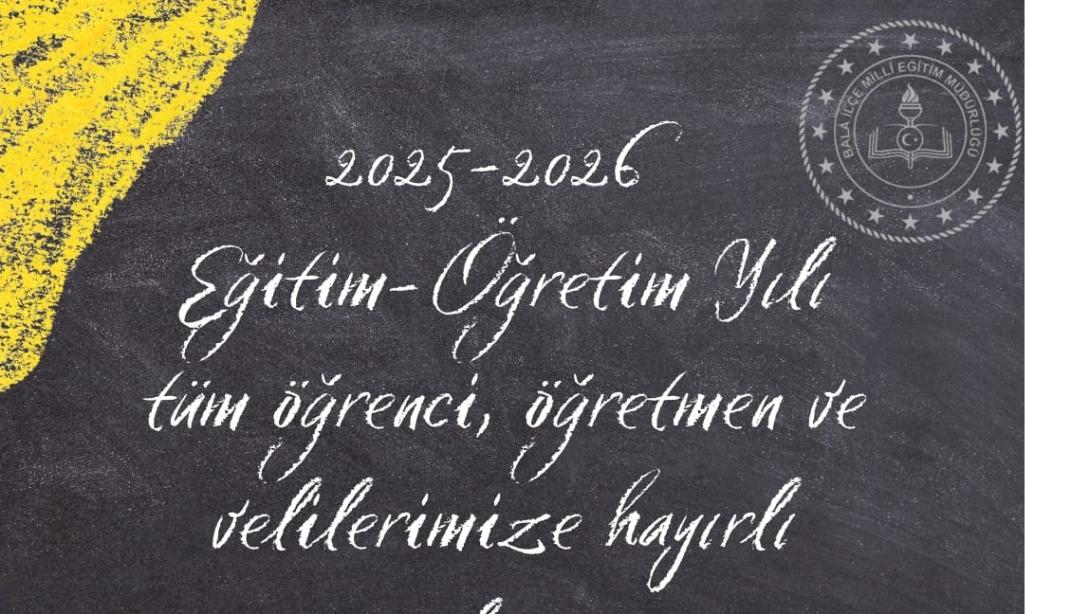 BALA İLÇE MİLLİ EĞİTİM MÜDÜRLÜĞÜ
2025-2026
Eğitim-Öğretim Yılı
tüm öğrenci, öğretmen ve
velilerimize hayırlı